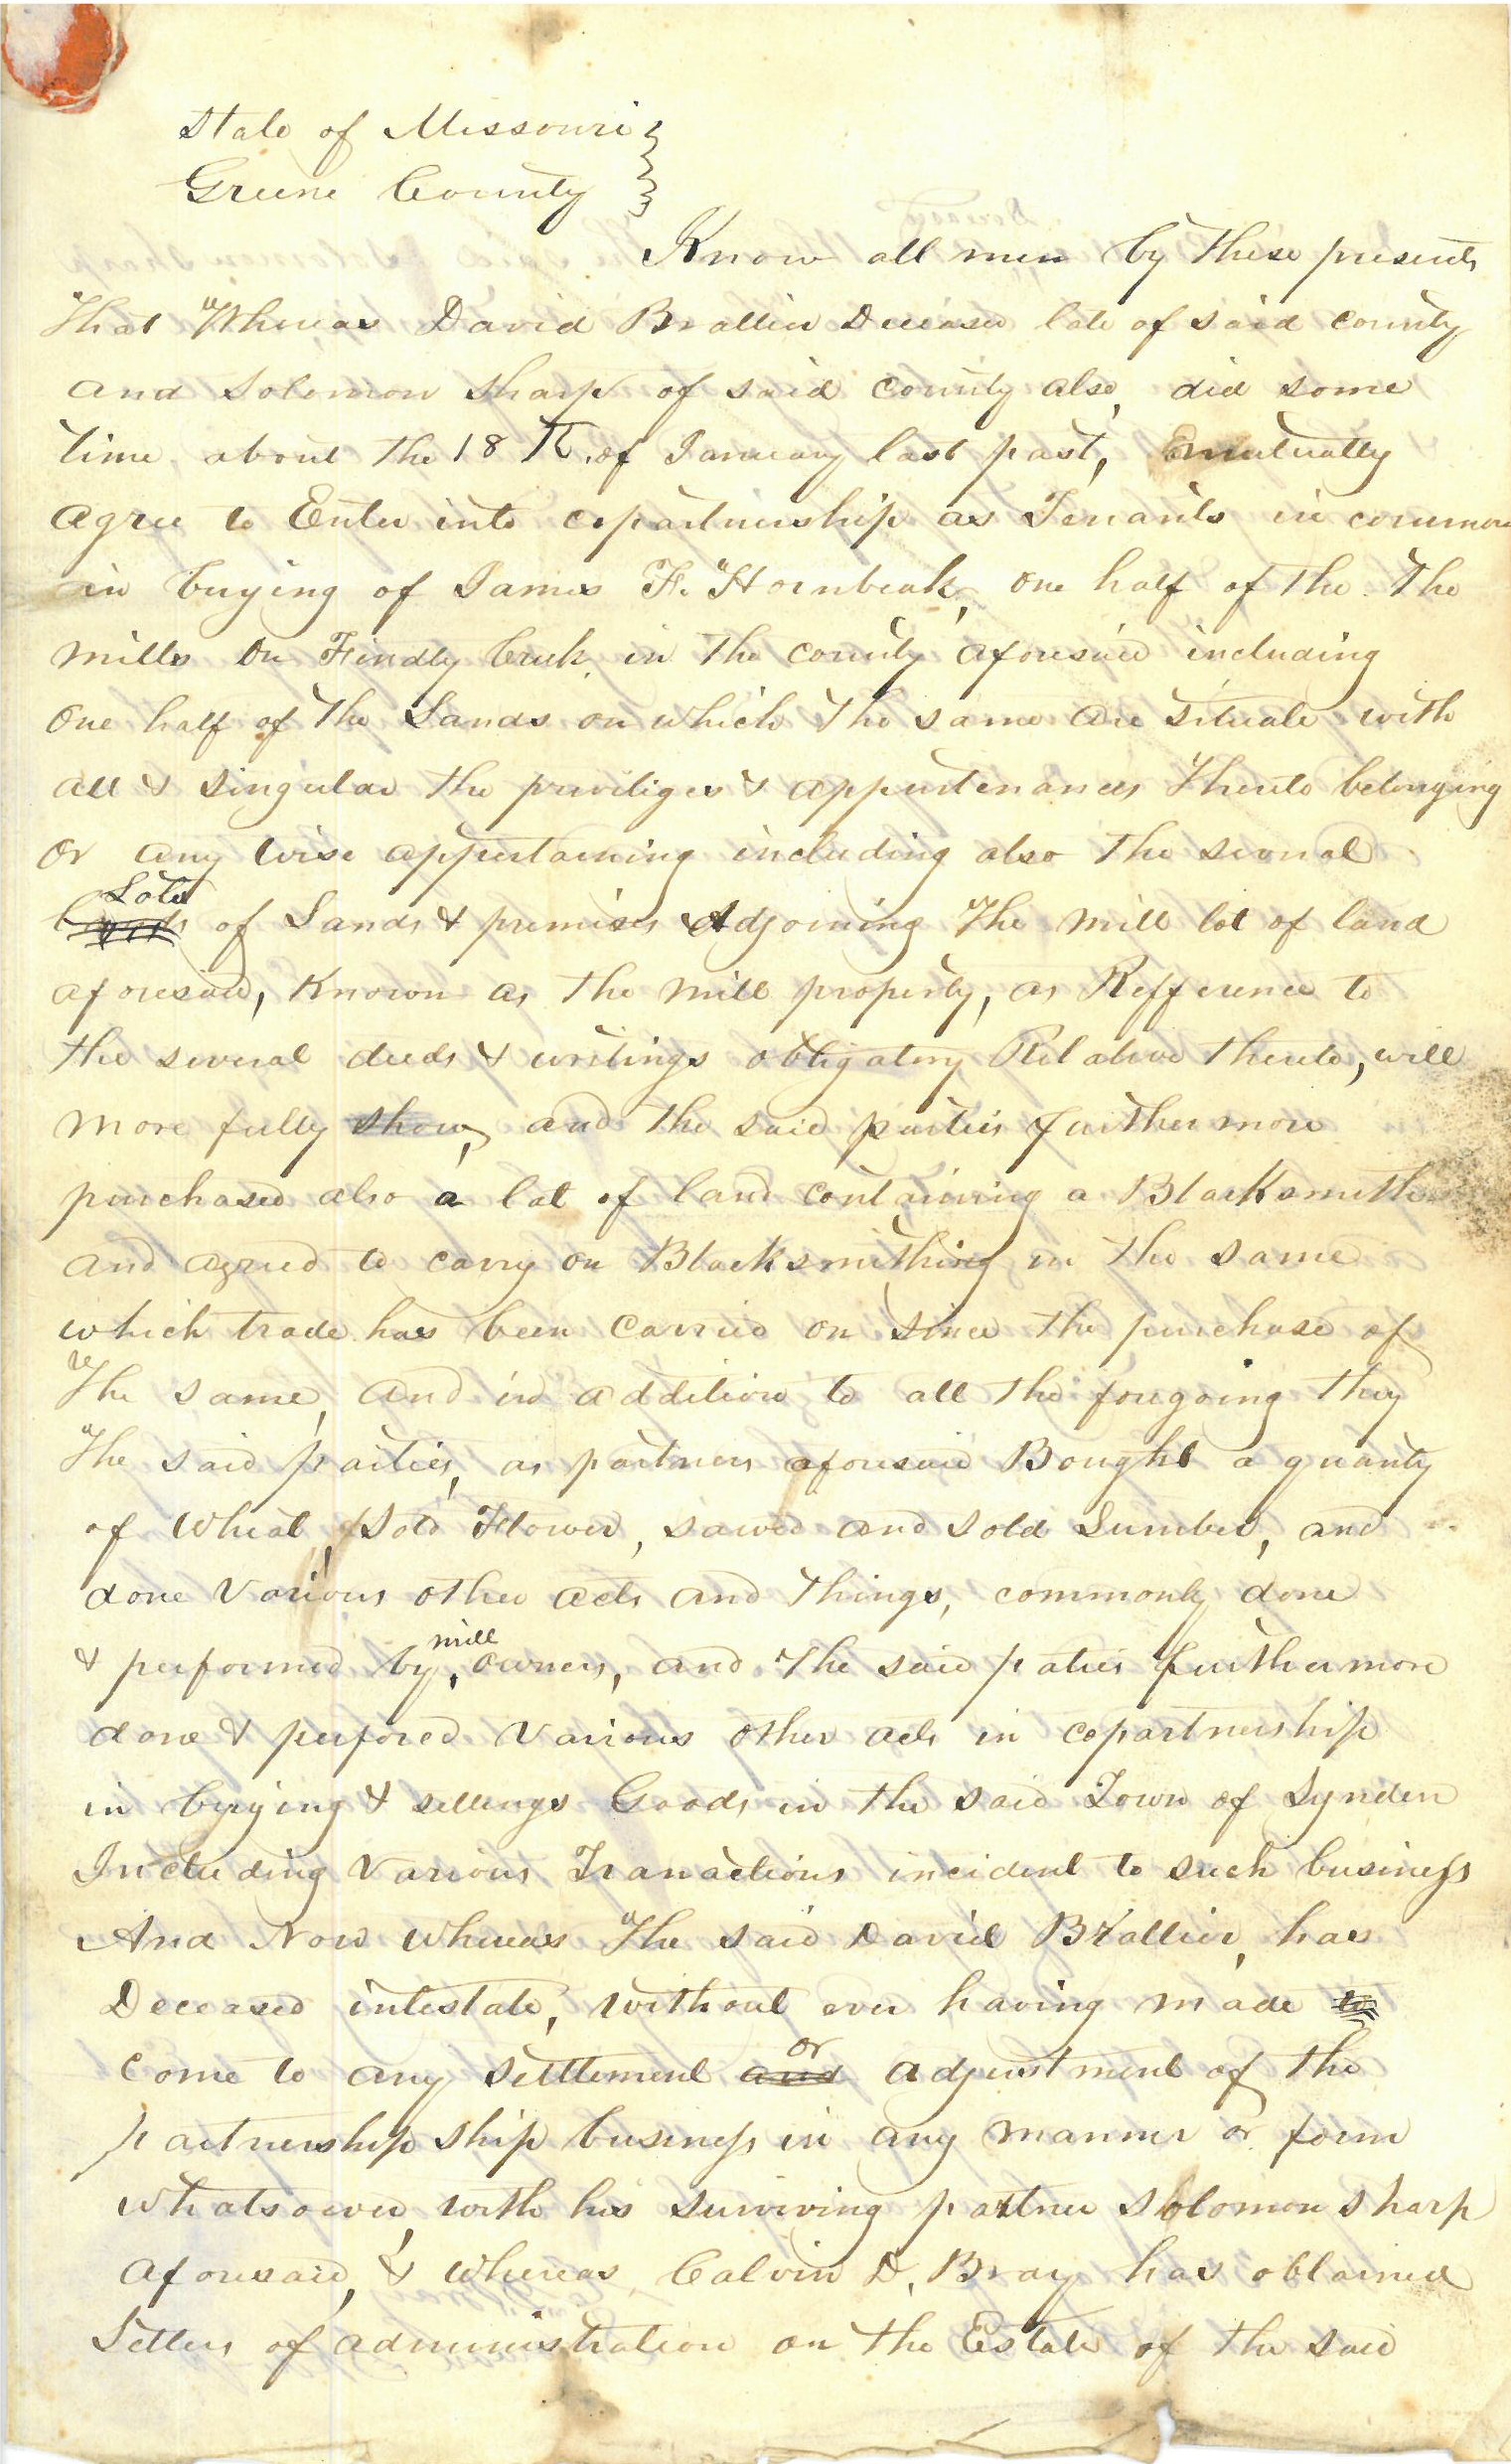 State of Missouri }
Greene County }
Know all men by these presents
That Whereas David Brallier Deceased late of said county
and Solomon Sharp of said county also, did some
time about the 18th. of January last past, mutually
agree to Enter into copartnership as Tenants in common
in buying of James F. Hornbeak, one half of the The
mills on Findly Creek, in the county aforesaid including
one half of the Lands on which the same are situate with
all & singular the priviliges & appurtenances thereto belonging
or any wise appertaining including also the several
Lots of Lands & premises Adjoining The mill lot of land
aforesaid, Known as the mill property, as Refference to
the several deeds & writings obligatory Relative thereto, will
more fully show, and the said parties furthermore
purchased also a lot of land containing a Blacksmith
and agreed to carry on Blacksmithing in the same
which trade has been carried on since the purchase of
The same, and in addition to all the foregoing they
The said parties, as partners aforesaid Bought a quanty
of Wheat, sold Flower, sawed and sold Lumber, and
done various other acts and things, commonly done
& performed by mill owners, and the said paties furthermore
done & perfored various other acts in copartnership
in buying & sellings Goods in the said Town of Lynden
Including various Tranactions incident to such business
And Now whereas The said David Brallier, has
Deceased intestate, without ever having made to
come to any settlement and or adjustment of the
partnership ship business in any manner or form
whatsoever, with his surviving partner Solomon Sharp
aforesaid, & whereas Calvin D. Bray has obtained
Letters of administration on the Estate of the said